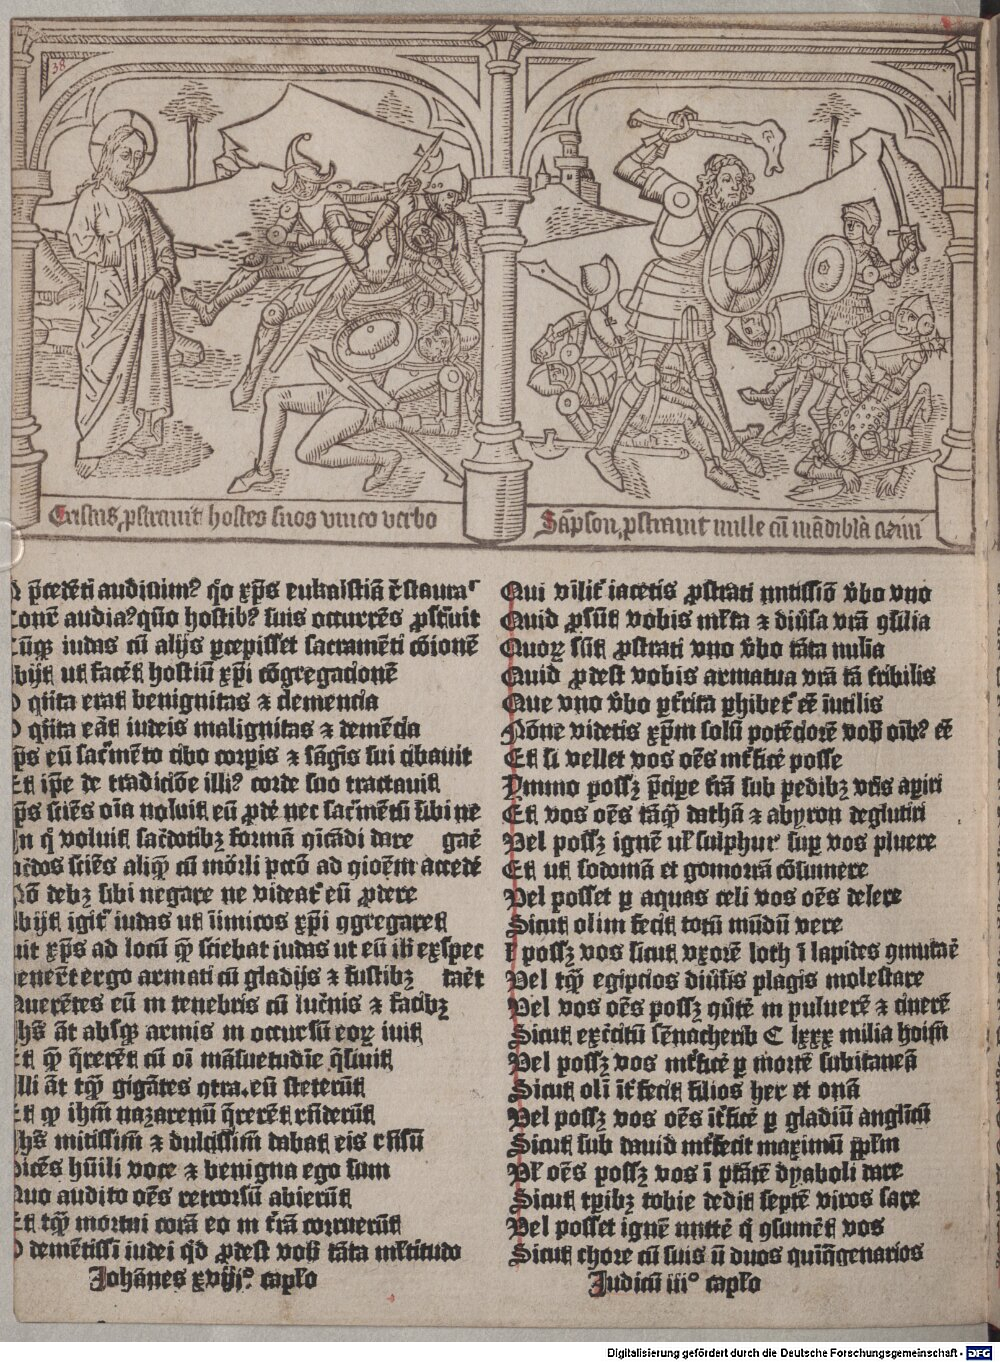 38
Cristus pstravit hostes suos unico verbo
Sāpson pstravit mille cū mādibla azini
p̄cedēti audivim9 qͦo xp̄s eukaistiā 9staura
cōne audia9 qūo hostib9 suis occurrēs pst̄vit
Cūq iudas cū alijs pcepisset sacramēti cōionē
bijt ut facēt hostiū xp̄i cōgregacionē
O qn̄ta erat benignitas ⁊ clemencia
O qn̄ta eāt iudeis malignitas ⁊ demēcia
xp̄s eū sac̄mēto cibo corpis ⁊ sāgis sui cibavit
Et ip̄e de tradiciōe illi9 corde suo tractavit
xp̄s sciēs oīa noluit eū pdē nec sac̄mētū sibi ne
In q voluit sac̄dotibꝫ formā 9icādi dare gaē
sciēs aliqē cū mōrli pctō ad 9ioēm accedē
Nō debꝫ sibi negare ne videat eū pdere
bijt igit̄ iudas ut inimicos xp̄i 9gregaret
ivit xp̄s ad locū qē sciebat iudas ut eū ibi exspec
venerēt ergo armati cū gladijs ⁊ fustibꝫ taēt
Querētes eū in tenebris cū lucīnis ⁊ facibꝫ
Ihs āt absqꝫ armis in occursū eoꝝ ivit
Et qē qrerēt cū oī māsuetudīe qsivit
Illi āt tāqꝫ gigātes 9tra eū steterūt
Et qp ihm nazarenū qrerēt rn̄derūt
Ihs mitissim9 ⁊ dulcissim9 dabat eis rn̄sū
Dicēs hūili voce ⁊ benigna ego sum
Quo audito oēs retrorsū abierūt
Et tāqꝫ mortui corā eo in t̄rā corruerūt
O demētissi iudei qd pdest vob tāta mltitudo
Johānes xviijͦ caplo
Qui vilit iacetis pstrati mitissiō v̄bo uno
Quid psūt vobis mlta ⁊ divsa vrā 9silia
Quoꝝ sūt pstrati uno v̄bo tāta milia
Quid pdest vobis armatura vrā tā tribilis
Que uno v̄bo pt̄rita phibet̄ eē iutilis
Nōne videtis xpm solū potēciorē vob oīb9 eē
Et si vellet vos oēs mt̄ficē posse
Ymmo possꝫ pcipe t̄rā sub pedibꝫ vr̄is apiri
Et vos oēs tāqꝫ dathā ⁊ abyron deglutiri
Vel possꝫ ignē ul sulphur sup vos pluere
Et ut sodomā et gomorrā cōsumere
Vel posset p aquas celi vos oēs delere
Sicut olim fecit totū mūdū vere
l possꝫ vos sicut uxorē loth ī lapides 9mutaē
Vel tāqꝫ egipcios divsis plagis molestare
Vel vos oēs possꝫ qūtē in puluerē ⁊ cinerē
Sicut exercitū sēnacherib C lxxx milia hoim
Vel possꝫ vos mt̄ficē p mortē subitaneā
Sicut olī it̄fecit filios her et onā
Vel possꝫ vos oēs it̄ficē p gladiū anglicū
Sicut sub david mt̄fecit maximū pplm
Vl oēs possꝫ vos ī ptātē dyaboli dare
Sicut tpibꝫ tobie dedit septē viros sare
Vel posset ignē mittē q 9sumēt vos
Sicut chore cū suis ū duos quīgenarios
Judicū iiiͦ caplo
Digitalisierung gefördert durch die Deutsche Forschungsgemeinschaft - DFG